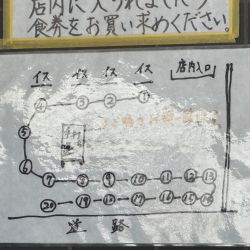 店内に入られましたら
食券をお買い求めください。
イス イス イス イス 店内入口
④ ③ ② ①
⑤
⑥
⑦ ⑧ ⑨ ⑩ ⑪ ⑫ ⑬
⑳ ⑲ ⑱ ⑰ ⑯ ⑮ ⑭
道路